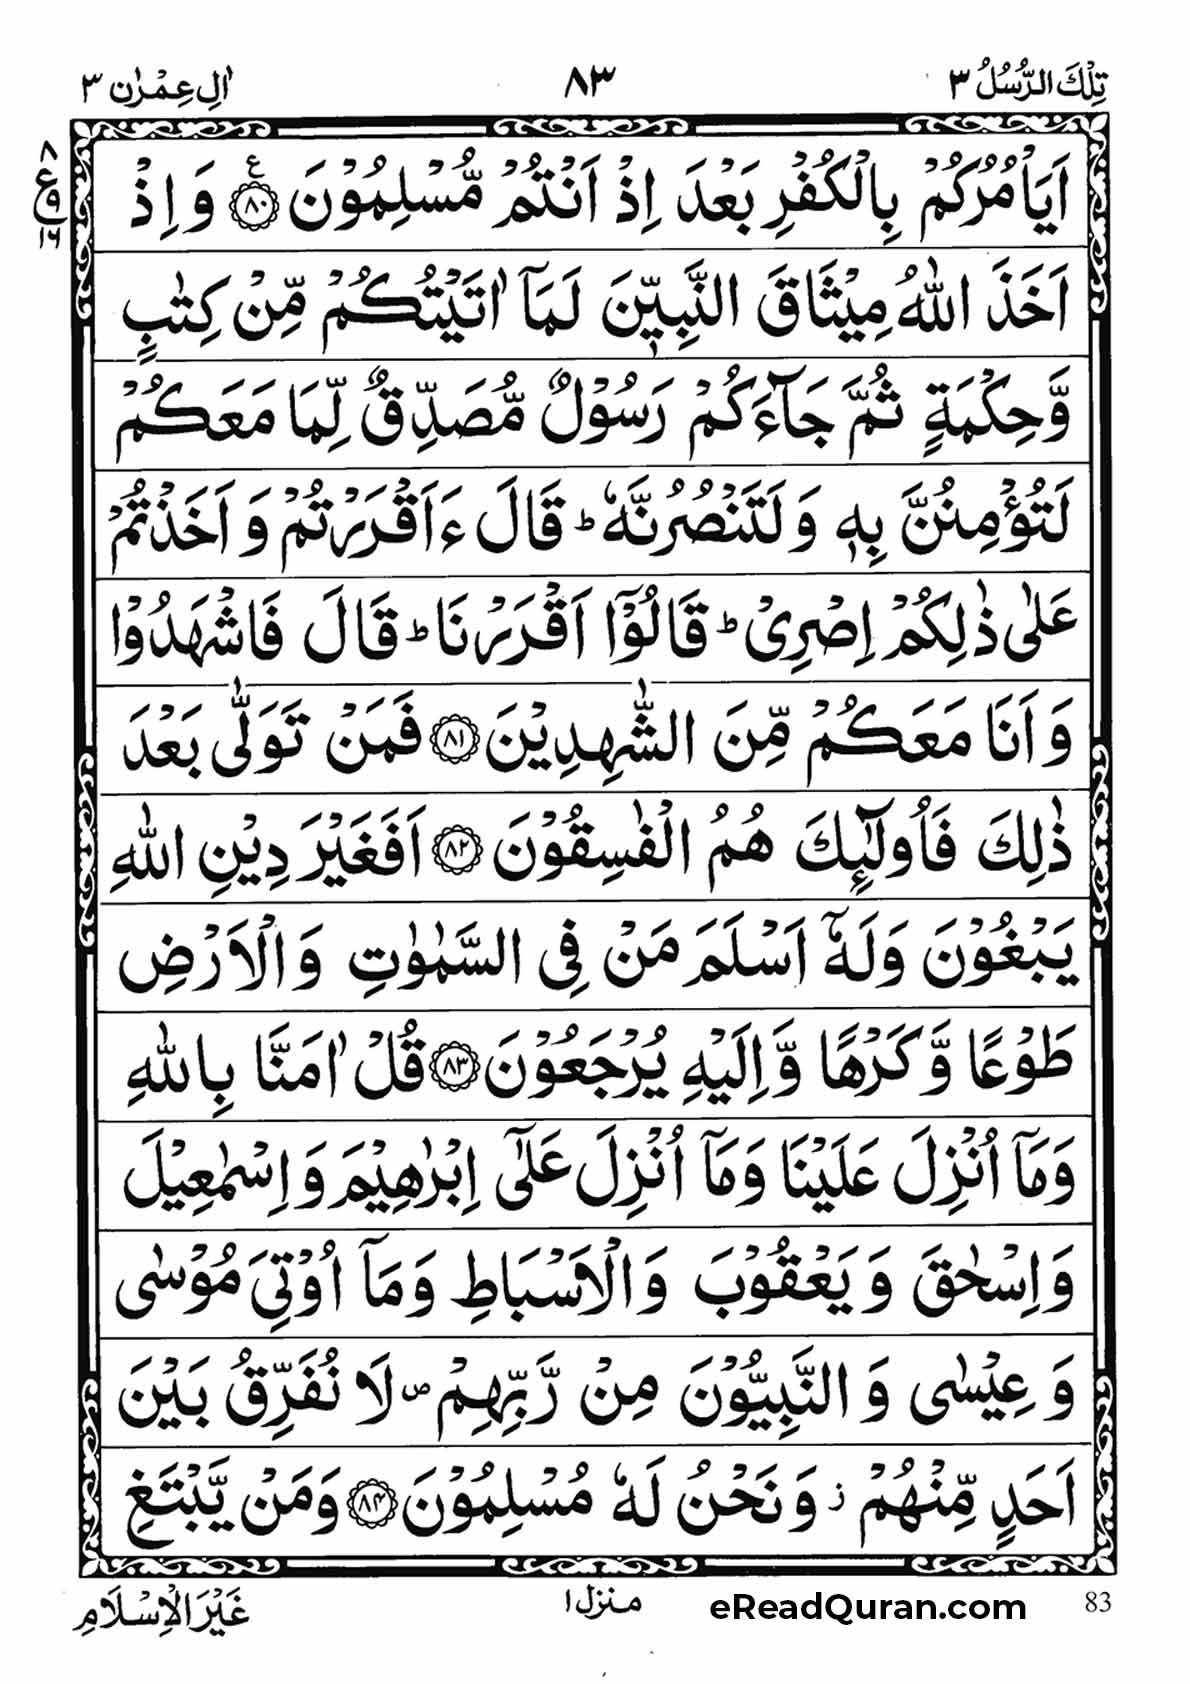 تِلْكَ الرُّسُلُ ٣ ٨٣ اٰلِ عِمْرٰن ٣
٨
ع
٩
١٦
اَيَاْمُرُكُمْ بِالْكُفْرِ بَعْدَ اِذْ اَنْتُمْ مُّسْلِمُوْنَ ﴿٨٠﴾ ع وَ اِذْ
اَخَذَ اللّٰهُ مِيْثَاقَ النَّبِيّٖنَ لَمَاۤ اٰتَيْتُكُمْ مِّنْ كِتٰبٍ
وَّحِكْمَةٍ ثُمَّ جَآءَكُمْ رَسُوْلٌ مُّصَدِّقٌ لِّمَا مَعَكُمْ
لَتُؤْمِنُنَّ بِهٖ وَ لَتَنْصُرُنَّهٗ ؕ قَالَ ءَاَقْرَرْتُمْ وَ اَخَذْتُمْ
عَلٰى ذٰلِكُمْ اِصْرِيْ ؕ قَالُوْۤا اَقْرَرْنَا ؕ قَالَ فَاشْهَدُوْا
وَ اَنَا مَعَكُمْ مِّنَ الشّٰهِدِيْنَ ﴿٨١﴾ فَمَنْ تَوَلّٰى بَعْدَ
ذٰلِكَ فَاُولٰٓئِكَ هُمُ الْفٰسِقُوْنَ ﴿٨٢﴾ اَفَغَيْرَ دِيْنِ اللّٰهِ
يَبْغُوْنَ وَلَهٗۤ اَسْلَمَ مَنْ فِي السَّمٰوٰتِ وَ الْاَرْضِ
طَوْعًا وَّ كَرْهًا وَّ اِلَيْهِ يُرْجَعُوْنَ ﴿٨٣﴾ قُلْ اٰمَنَّا بِاللّٰهِ
وَمَاۤ اُنْزِلَ عَلَيْنَا وَمَاۤ اُنْزِلَ عَلٰۤى اِبْرٰهِيْمَ وَ اِسْمٰعِيْلَ
وَ اِسْحٰقَ وَ يَعْقُوْبَ وَ الْاَسْبَاطِ وَ مَاۤ اُوْتِيَ مُوْسٰى
وَ عِيْسٰى وَ النَّبِيُّوْنَ مِنْ رَّبِّهِمْ ۪ لَا نُفَرِّقُ بَيْنَ
اَحَدٍ مِّنْهُمْ ز وَ نَحْنُ لَهٗ مُسْلِمُوْنَ ﴿٨٤﴾ وَ مَنْ يَّبْتَغِ
غَيْرَ الْاِسْلَامِ منزل ١ eReadQuran.com 83